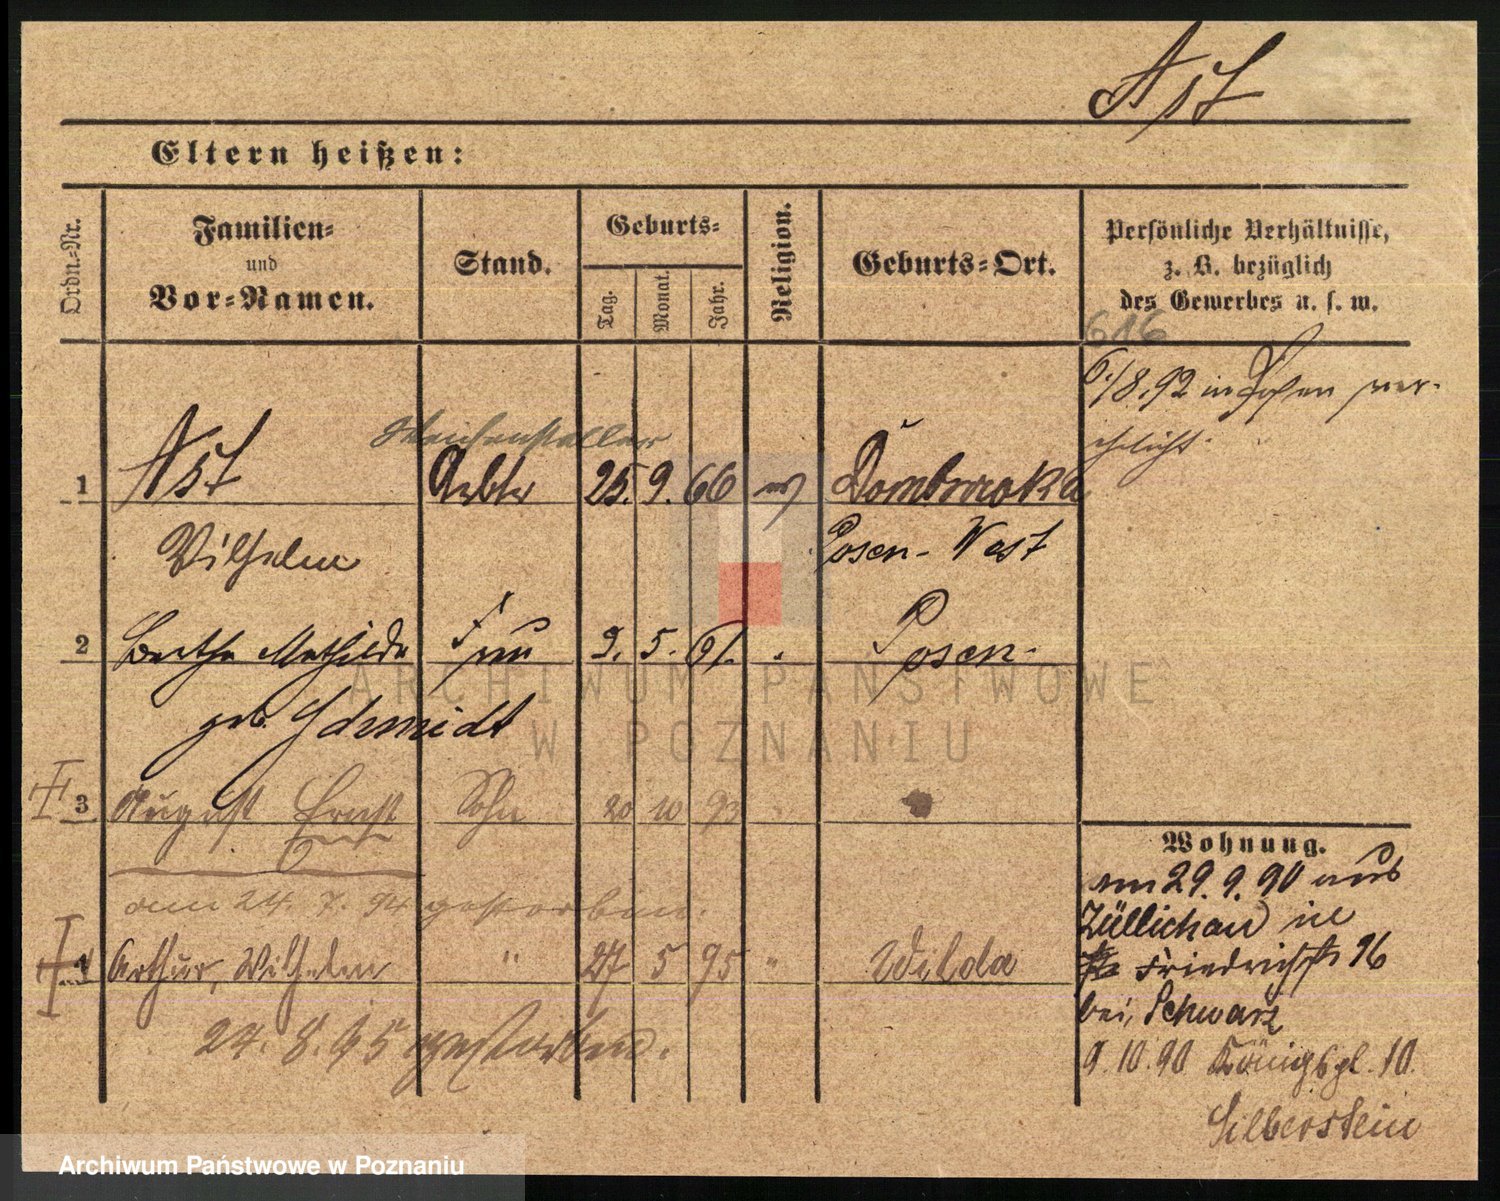 Ast
Eltern heißen:
Ordn.-Nr.
Familien-
und
Vor-Namen.
Stand.
Geburts-
Tag.
Monat.
Jahr.
Religion.
Geburts-Ort.
Persönliche Verhältnisse,
z. B. bezüglich
des Gewerbes u. s. w.
616
6./8.92 in Posen ver-
ehelicht.
Weichensteller
1 Ast Arbtr 25. 9. 66 ev Dombrowka
Wilhelm Posen-West
2 Bertha Mathilde Frau 2. 5. 61. Posen.
geb. Schmidt
3 August Ernst Sohn 20 10 93
am 24. 7. 94 gestorben.
4 Arthur, Wilhelm " 27 5 95 " Wilda
24. 8. 95 gestorben.
Wohnung.
am 29. 9. 90 aus
Züllichau in
Friedrichstr 16
bei Schwarz
9.10.90 Königspl. 10.
Silberstein
ARCHIWUM PAŃSTWOWE
W POZNANIU
Archiwum Państwowe w Poznaniu